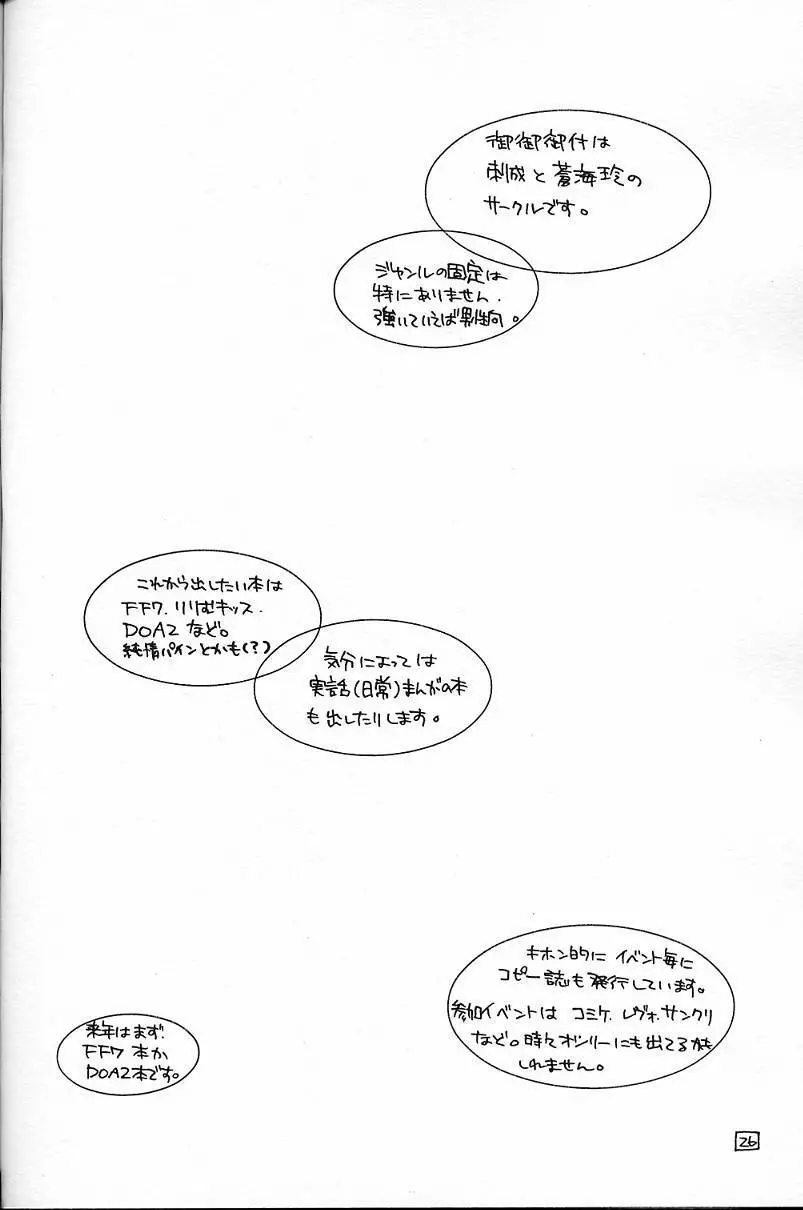 御御御付は
刺成と蒼海玲の
サークルです。
ジャンルの固定は
特にありません.
強いていえば男性向。
これから出したい本は
FF7. りりむキッス.
DOA2 など。
純情パインとかも(?)
気分によっては
実話(日常)まんがの本
も出したりします。
キホン的に イベント毎に
コピー誌も発行しています。
参加イベントは コミケ. レヴォ. サンクリ
など。時々オンリーにも出てるかも
しれません。
来年はまず.
FF7 本か
DOA2本です。
26